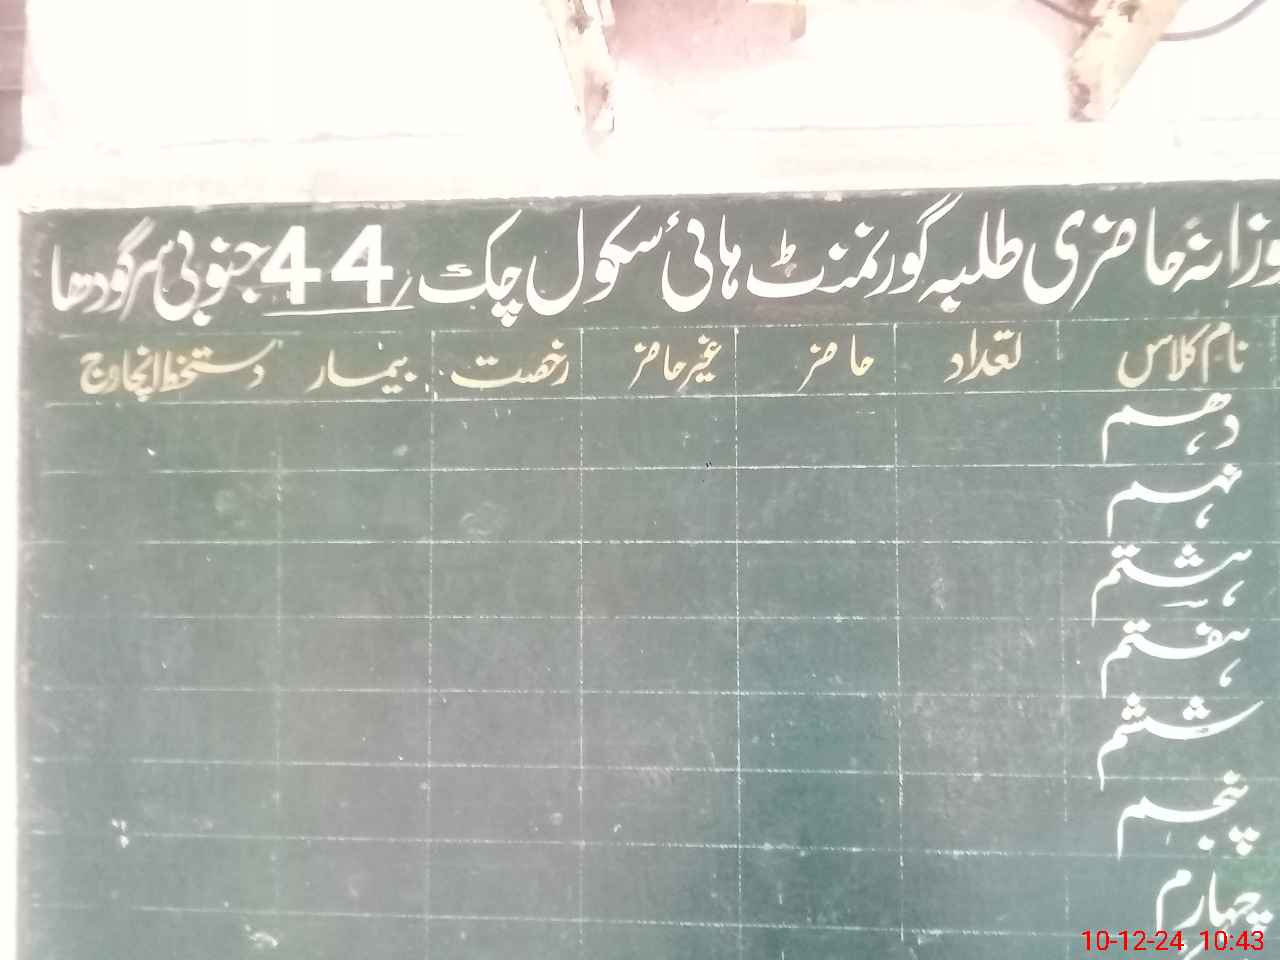 وزانہ حاضری طلبہ گورنمنٹ ہائی سکول چک 44 جنوبی سرگودھا
نام کلاس تعداد حاضر غیر حاضر رخصت بیمار دستخط انچارج
دہم
نہم
ہشتم
ہفتم
ششم
پنجم
چہارم
10-12-24 10:43